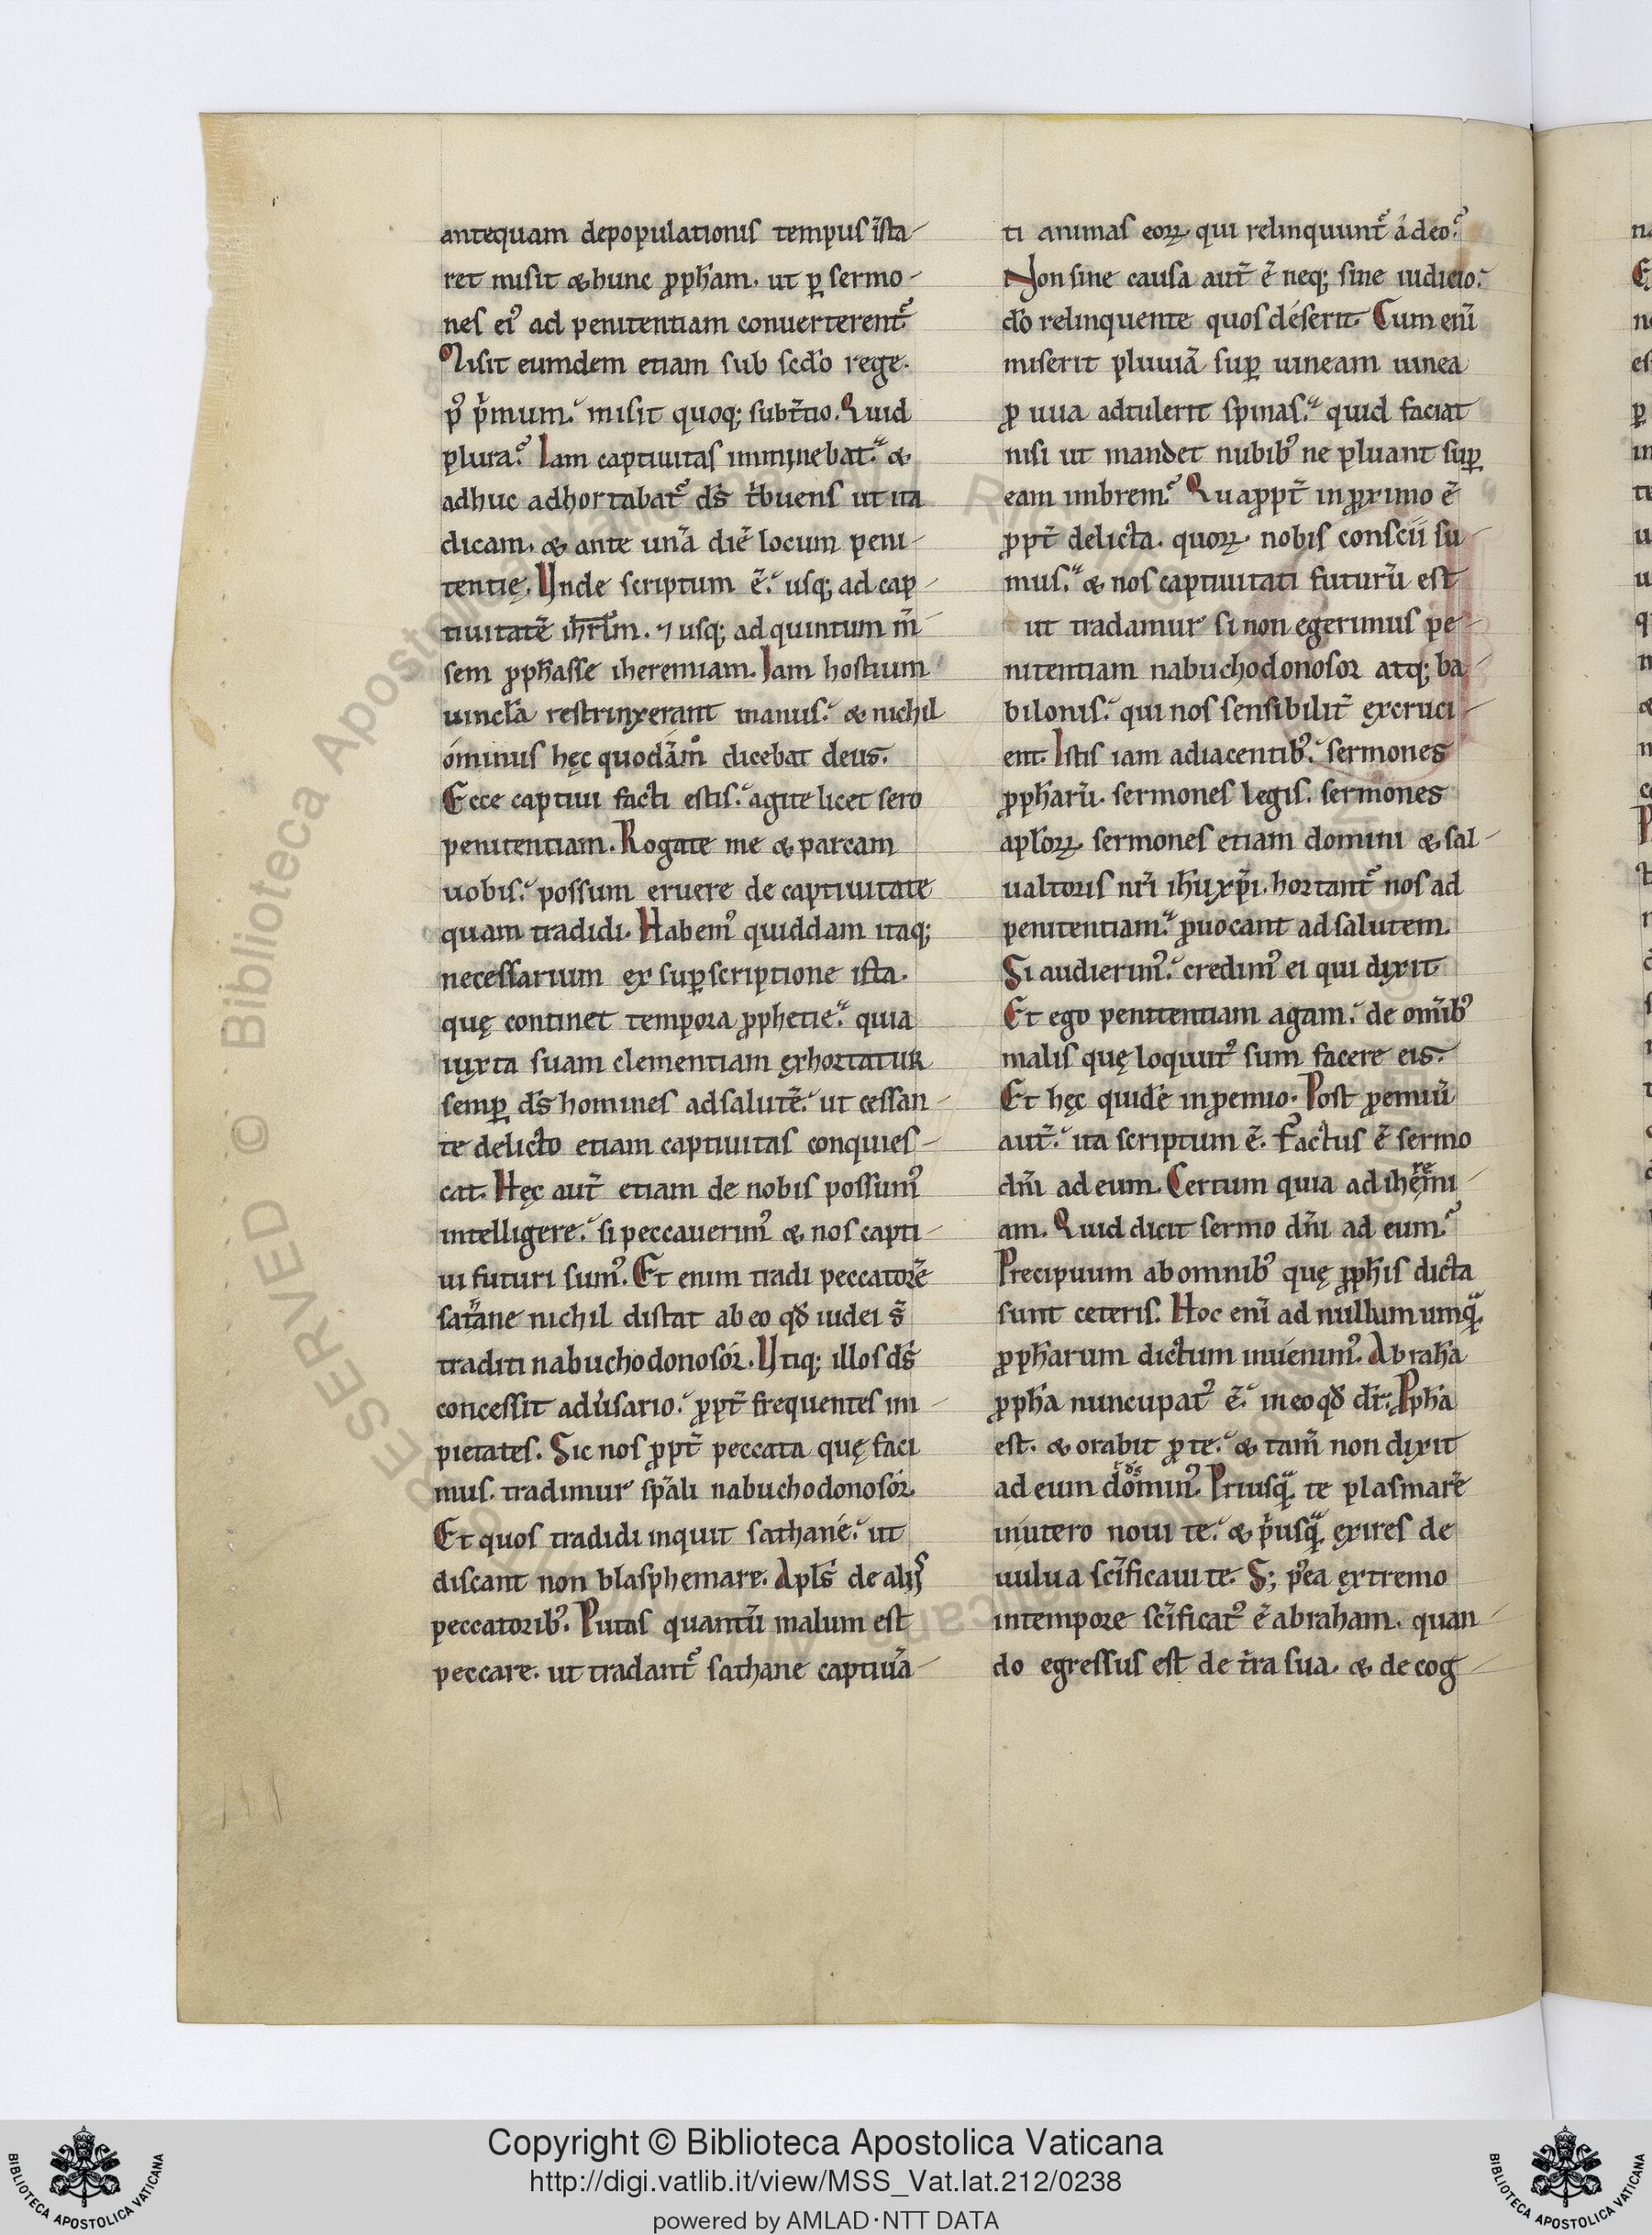 antequam depopulationis tempus ista-
ret misit & hunc ꝓph̄am. ut ꝑ sermo-
nes eiꝰ ad penitentiam conuerterent᷑
Misit eumdem etiam sub scd̄o rege.
pꝰ p̄mum. misit quoq; sub t̄tio. Quid
plura? Iam captiuitas imminebat. &
adhuc adhortabat᷑ ds̄ t̄buens ut ita
dicam. & ante unā diē locum peni-
tentię. Unde scriptum ē. usq; ad cap-
tiuitatē ih̄rl̄m. ⁊ usq; ad quintum m̄-
sem ꝓph̄asse iheremiam. Iam hostium
uincl̄a restrinxerant manus. & nichil
ominus hęc quodāmo dicebat deus.
Ecce captiui facti estis. agite licet sero
penitentiam. Rogate me & parcam
uobis. possum eruere de captiuitate
quam tradidi. Habemꝰ quiddam itaq;
necessarium ex suꝑscriptione ista.
quę continet tempora ꝓphetie. quia
iuxta suam clementiam exhortatur
semꝑ ds̄ homines ad salutē. ut cessan-
te delicto etiam captiuitas conquies-
cat. Hęc aut̄ etiam de nobis possumꝰ
intelligere. si peccauerimꝰ & nos capti-
ui futuri sumꝰ. Et enim tradi peccatorē
satane nichil distat ab eo qđ iudei s̄
traditi nabuchodonosór. Utiq; illos ds̄
concessit adu̓sario. ꝓpt̄ frequentes im-
pietates. Sic nos ꝓpt̄ peccata quę faci
mus. tradimur sp̄ali nabuchodonosór.
Et quos tradidi inquit sathané. ut
discant non blasphemare. Apl̄s de alijs
peccatoribꝰ. Putas quantū malum est
peccare. ut tradant᷑ sathane captiuā-
ti animas eoꝝ qui relinquunt᷑ á deo?
Non sine causa aut̄ ē neq; sine iudicio.
dō relinquente quos déserit. Cum eni̅
miserit pluuiā suꝑ uineam uinea
ꝓ uua adtulerit spinas. quid faciat
nisi ut mandet nubibꝰ ne pluant suꝑ
eam imbrem? Quappt̄ in ꝓximo ē
ꝓpt̄ delicta. quoꝝ nobis conscii su-
mus. & nos captiuitati futurū est
ut tradamur si non egerimus pe-
nitentiam nabuchodonosor atq; ba-
bilonis. qui nos sensibilit̄ excruci-
ent. Istis iam adiacentibꝰ. sermones
ꝓph̄arū. sermones legis. sermones
apl̄oꝝ sermones etiam domini & sal-
ualtoris nr̄i ih̄u xp̄i. hortant᷑ nos ad
penitentiam. ꝓuocant ad salutem.
Si audierimꝰ. credimꝰ ei qui dixit
Et ego penitentiam agam. de omībꝰ
malis quę loquutꝰ sum facere eis.
Et hęc quidē in ꝓemio. Post ꝓemiū
aut̄. ita scriptum ē. Factus ē sermo
dn̄i ad eum. Certum quia ad iheremi-
am. Quid dicit sermo dn̄i ad eum?
Precipuum ab omnibꝰ quę ꝓph̄is dicta
sunt ceteris. Hoc eni̅ ad nullum umqᷓ.
ꝓph̄arum dictum inuenimꝰ. Abrahā
ꝓph̄a nuncupatꝰ ē. in eo qđ dr̄. Ꝓph̄a
est. & orabit ꝓ te. & tam̄ non dixit
ad eum dominꝰ. Priusqᷓ. te plasmarē
in utero noui te. & p̄usqᷓ. exires de
uulua scīficaui te. S; pꝰea extremo
in tempore scīficatꝰ ē abraham. quan-
do egressus est de t̄ra sua. & de cog-
Copyright © Biblioteca Apostolica Vaticana
http://digi.vatlib.it/view/MSS_Vat.lat.212/0238
powered by AMLAD·NTT DATA